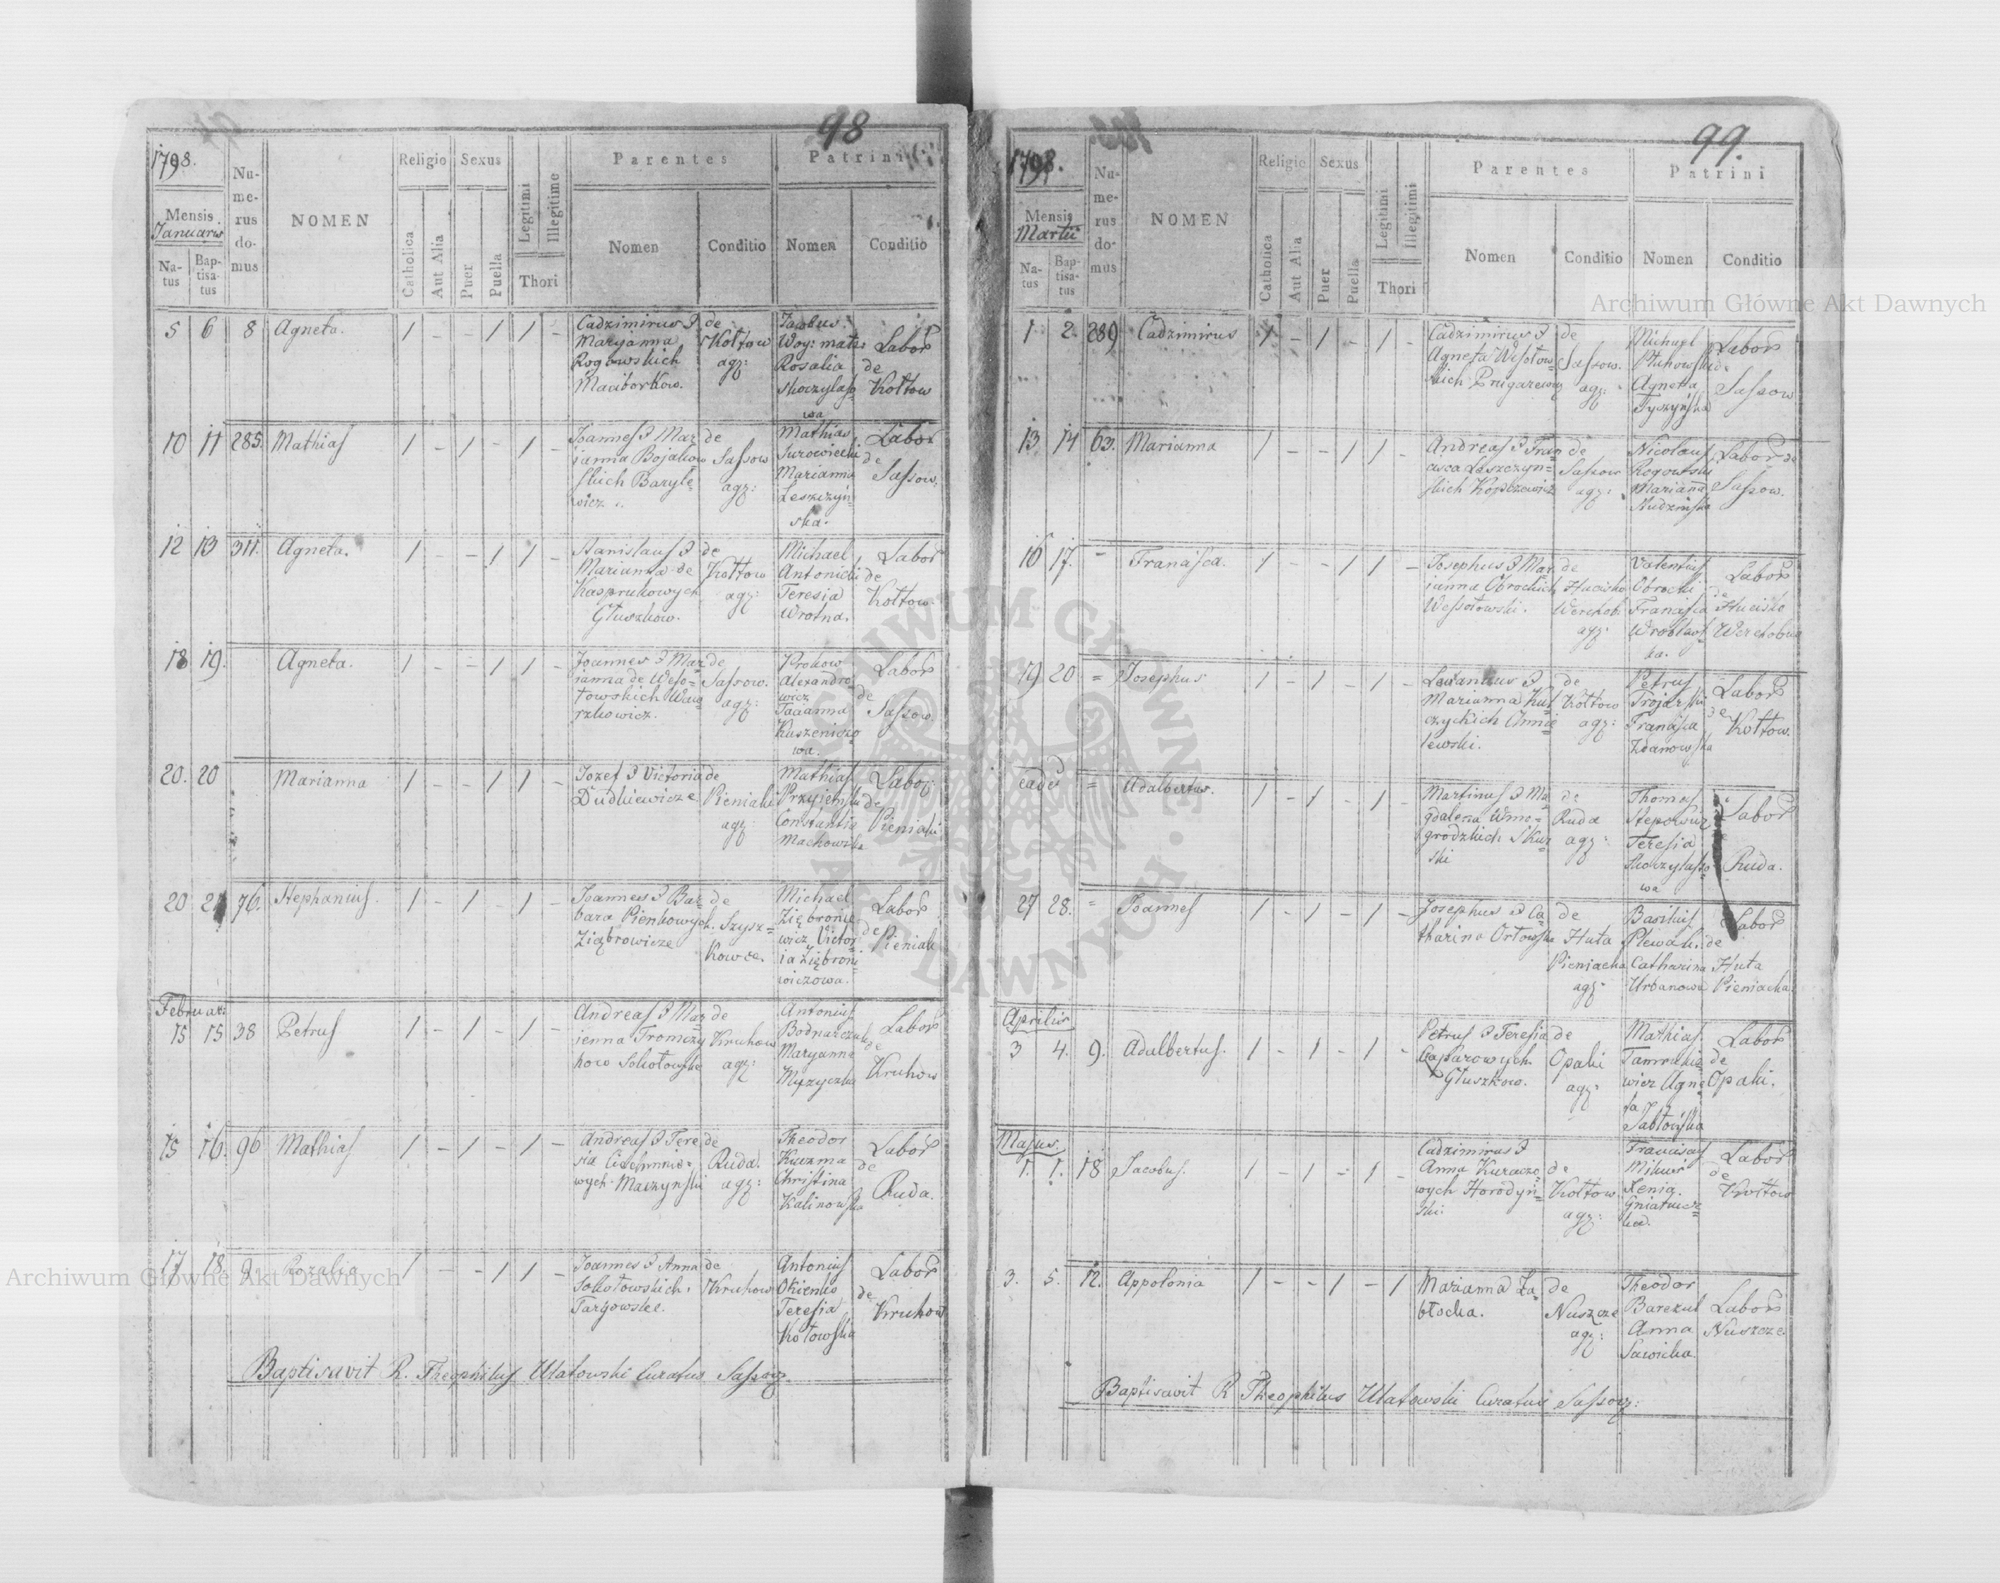 98
1798.
Mensis
Januarii
Na-
tus
Bap-
tisa-
tus
Nu-
me-
rus
do-
mus
NOMEN
Religio
Catholica
Aut Alia
Sexus
Puer
Puella
Legitimi
Illegitime
Thori
Parentes
Nomen
Conditio
Patrini
Nomen
Conditio
5 6 8 Agneta. 1 - - 1 1 -
Cadzimirus
Maryanna
Rogowskich
Maciborkow.
de
Kołtow
agr:
Jacobus
Rosalia
Skoczylas
wa
Labor
de
Kołtow
10 11 285. Mathias 1 - 1 - 1 -
Joannes & Mar
ianna Bojakow
skich Baryle
wicz
de
Sassow
agr:
Mathias
Surowiecki
Marianna
Leszczyń-
ska.
Labor
de
Sassow.
12 13 311. Agneta. 1 - - 1 1 -
Stanislaus &
Marianna de
Kasprukowych
Głuszkow.
de
Kołtow
agr:
Michael
Antonicki
Teresia
Wrotna.
Labor
de
Kołtow.
18 19. Agneta. 1 - - 1 1 -
Joannes & Mar
ianna de Weso-
łowskich Waw
rzkowicz.
de
Sassow.
agr:
Prokow
Alexandro
wicz
Tacianna
Kuszenico
wa.
Labor
de
Sassow.
20. 20 Marianna 1 - - 1 1 -
Jozef & Victoria
Dudkiewicze
de
Pieniaki
agr:
Mathias
Przyjemski
Constantia
Machowska
Labor
de
Pieniaki
20 21 76. Stephanius. 1 - 1 - 1 -
Joannes & Bar-
bara Pienkowych
Ziębrowicze
de
Szysz-
kowce.
Michael
Ziębrowic
wicz Victor
ia Ziębrow
wiczowa.
Labor
de
Pieniaki
Februar:
15 15 38 Petrus 1 - 1 - 1 -
Andreas & Mar
ianna Tromczy
kow Sokołowski
de
Kruhow
agr:
Antonius
Bodnarczuk
Maryanna
Muzyczka
Labor
de
Kruhow
15 16. 96 Mathias 1 - 1 - 1 -
Andreas & Tere
sia
wych Maszynski
de
Ruda.
agr:
Theodor
Kuzma
Christina
Kalinowska
Labor
de
Ruda.
17 18. 9. Rozalia 1 - - 1 1 -
Joannes & Anna
Sokołowskich
Targowskie.
de
Kruhow
Antonius
Okienko
Teresia
Kotowska
Labor
de
Kruhow
Baptisavit R. Theophilus Ulatowski Curatus Sassow.
99.
1798.
Mensis
Martii
Na-
tus
Bap-
tisa-
tus
Nu-
me-
rus
do-
mus
NOMEN
Religio
Catholica
Aut Alia
Sexus
Puer
Puella
Legitimi
Illegitimi
Thori
Parentes
Nomen
Conditio
Patrini
Nomen
Conditio
1 2. 289. Cadzimirus 1 - 1 - 1 -
Cadzimirus &
Agneta Wesołow-
skich
de
Sassow.
agr:
Michael
Agneta
Tyczyńska
Labor
de
Sassow
13 14 63. Marianna 1 - - 1 1 -
Andreas & Fran
cisca Leszczyn-
skich Kopczewicz
de
Sassow
agr:
Nicolaus
Rogowski
Marianna
Rudzinska
Labor de
Sassow.
16 17. - Francisca. 1 - - 1 1 -
Josephus & Mar
ianna Obrockich
Wesołowski.
de
Hucisko
Werchob
agr:
Valentius
Obrocki
Francisca
Wroblews
ka.
Labor
de
Hucisko
Werchobus
19 20 = Josephus 1 - 1 - 1 -
Marianna Kul
czyckich Omnie
lewski.
de
Kołtow
agr:
Petrus
Trojarski
Francisca
Zdanowska
Labor
de
Kołtow.
eade = Adalbertus. 1 - 1 - 1 -
Martinus & Ma
gdalena Winio-
grodzkich Skur
ski
de
Ruda
agr:
Thomas
Stepowicz
Teresia
Skoczylasso-
wa
Labor
Ruda.
27 28. = Joannes 1 - 1 - 1 -
Josephus & Ca
tharina Orłowska
de
Huta
Pieniacka
agr:
Basilius
Plewak
Catharina
Urbanowa
Labor
de
Huta
Pieniacka
Aprilis
3 4. 9. Adalbertus. 1 - 1 - 1 -
Petrus & Teresia
Gasparowych
Głuszkow.
de
Opaki
agr:
Mathias
wicz Agne
ta
Jabłońska
Labor
de
Opaki.
Majus.
1. 1. 18 Jacobus. 1 - 1 - 1 -
Cadzimirus &
Anna Kuracze
wych Horodyń-
ski
de
Kołtow.
agr:
Francisus
Xenia
Gniatucz-
ka.
Labor
de
Kołtow
3. 5. 12. Appolonia 1 - - 1 - 1
Marianna Za
błocka.
de
Nuszcze
agr:
Theodor
Barczul
Anna
Sawicka.
Labor
Nuszcze
Baptisavit R Theophilus Ulatowski Curatus Sassow:
Archiwum Główne Akt Dawnych
Archiwum Główne Akt Dawnych
ARCHIWUM GŁÓWNE · AKT DAWNYCH ·